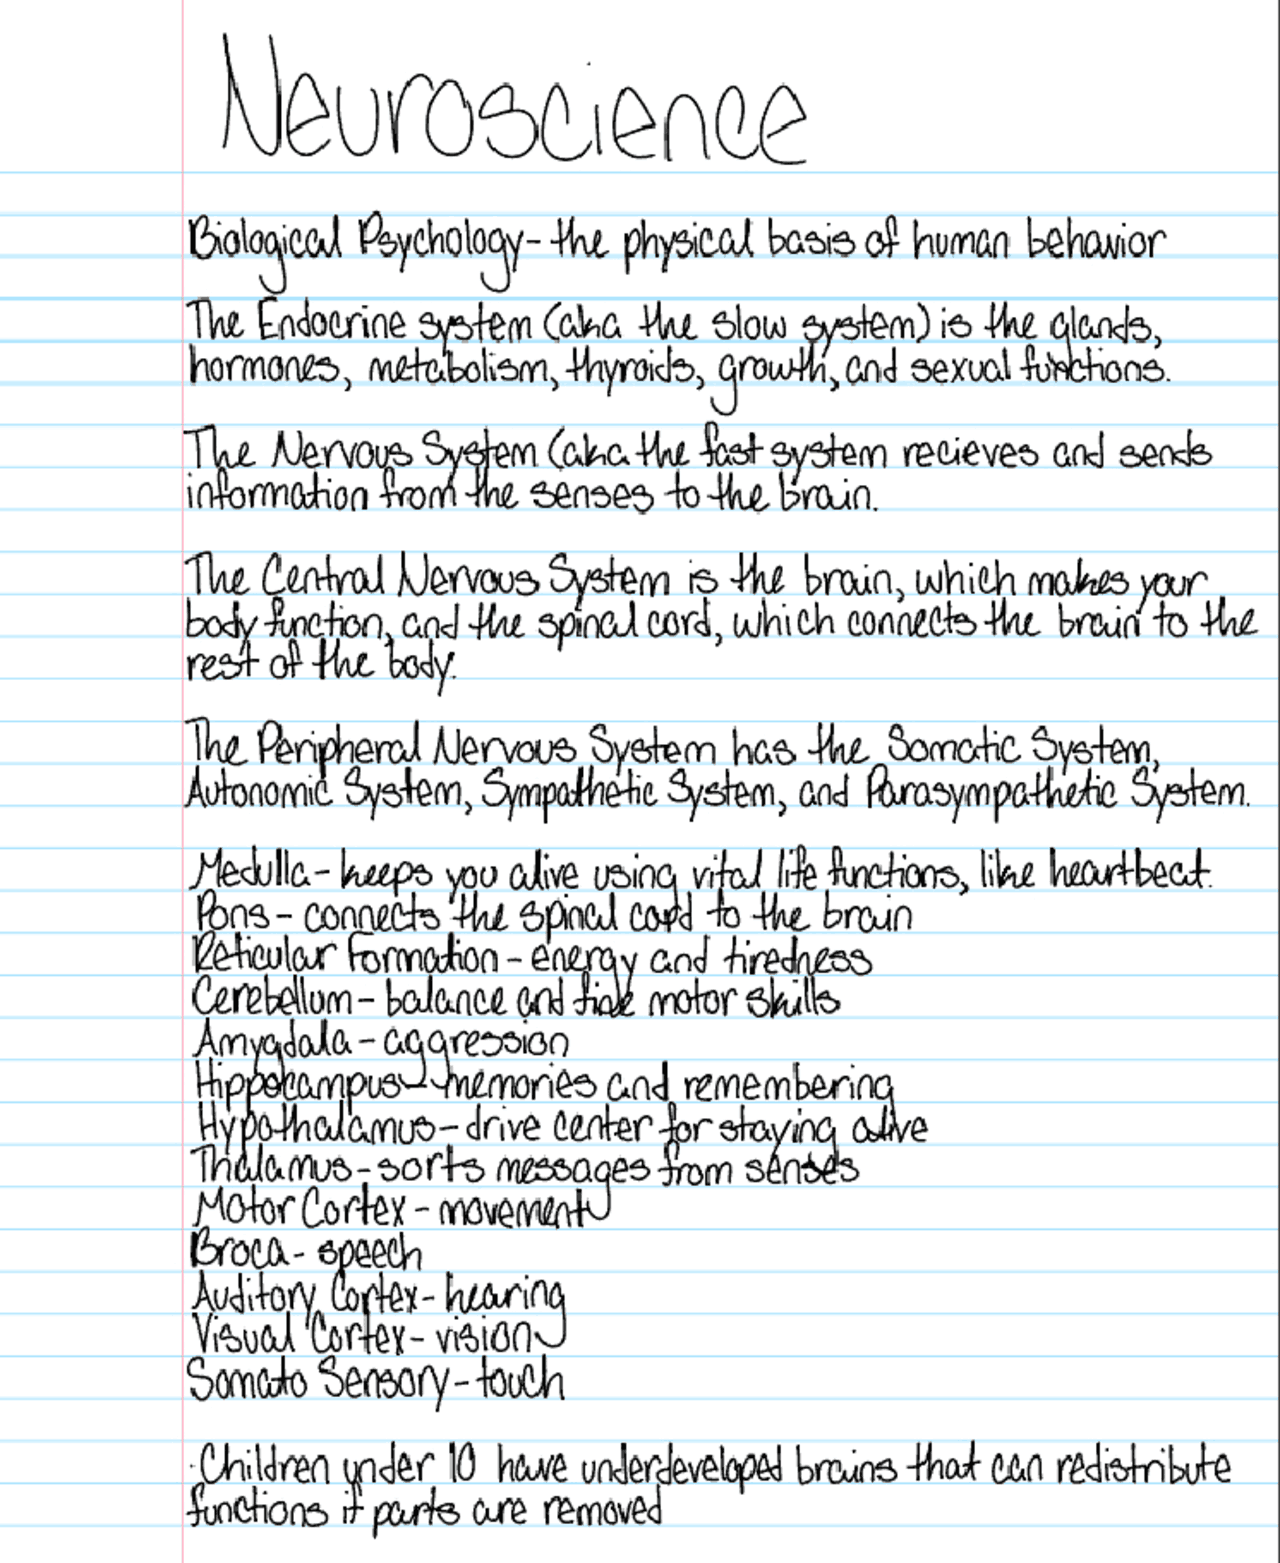 Neuroscience
Biological Psychology- the physical basis of human behavior
The Endocrine system (aka the slow system) is the glands,
hormones, metabolism, thyroids, growth, and sexual functions.
The Nervous System (aka the fast system recieves and sends
information from the senses to the brain.
The Central Nervous System is the brain, which makes your
body function, and the spinal cord, which connects the brain to the
rest of the body.
The Peripheral Nervous System has the Somatic System,
Autonomic System, Sympathetic System, and Parasympathetic System.
Medulla- keeps you alive using vital life functions, like heartbeat.
Pons- connects the spinal cord to the brain
Reticular Formation- energy and tiredness
Cerebellum- balance and fine motor skills
Amygdala- aggression
Hippocampus- memories and remembering
Hypothalamus- drive center for staying alive
Thalamus- sorts messages from senses
Motor Cortex- movement
Broca- speech
Auditory Cortex- hearing
Visual Cortex- vision
Somato Sensory- touch
·Children under 10 have underdeveloped brains that can redistribute
functions if parts are removed